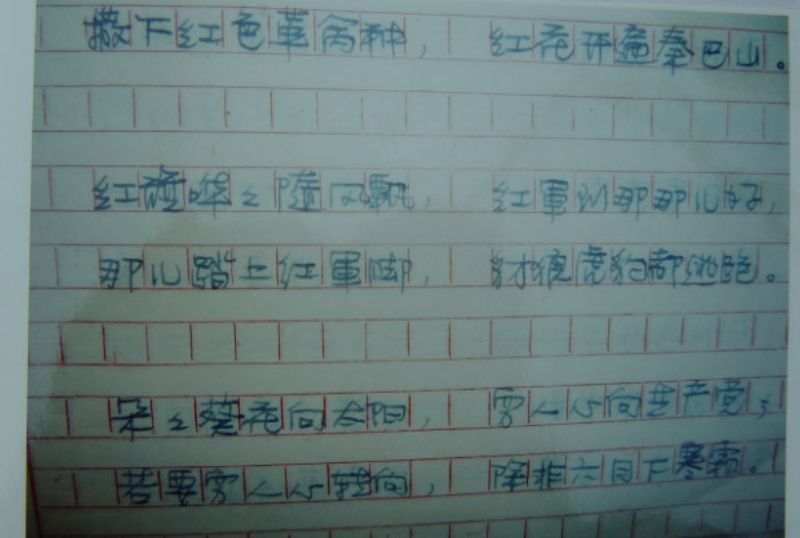 撒下红色革命种, 红花开遍秦巴山。
红旗哗々随风飘, 红軍到那那儿好,
那儿踏上红軍脚, 豺狼虎豹都逃跑。
朵々葵花向太阳, 穷人心向共产党;
若要穷人心转向, 除非六月下寒霜。